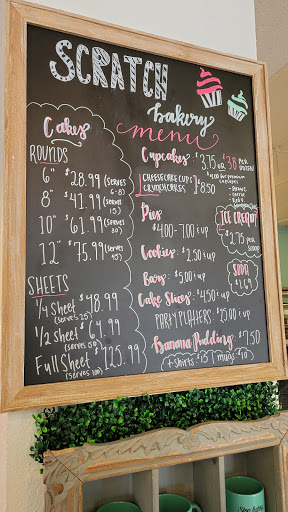 SCRATCH
bakery
menu
Cakes
ROUNDS
6" $28.99 (SERVES 6-8)
8" $41.99 (SERVES 15)
10" $61.99 (SERVES 30)
12" $75.99 (SERVES 45)
SHEETS
1/4 Sheet $48.99
(SERVES 25)
1/2 Sheet $64.99
(SERVES 50)
Full Sheet $125.99
(SERVES 100)
Cupcakes: $3.75 OR $38 PER DOZEN
CHEESECAKE CUPS
CRUNCHCAKES $8.50
Pies
$4.00-7.00 & up
Cookies: $2.50 & up
Bars: $5.00 & up
Cake Slices: $4.50 & up
PARTY PLATTERS: $25.00 & up
Banana Pudding $7.50
T-Shirts $15 | Mugs $10
ICE CREAM
$2.75 PER SCOOP
SODA
$1.69